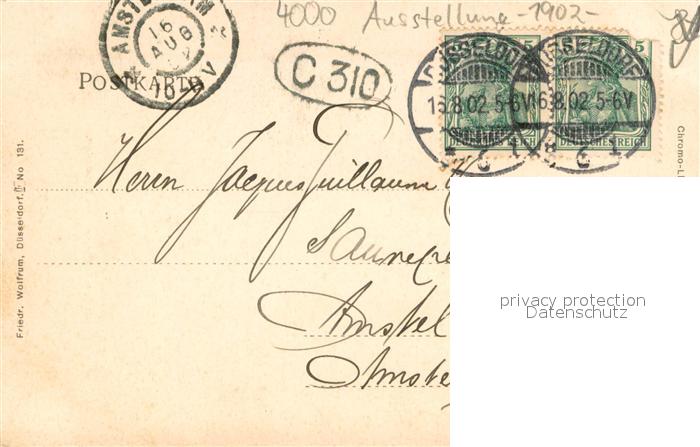 4000 Ausstellung -1902-
AMSTERDAM 2
16
AUG
10-11 V
C 310
POSTKARTE
5
5
DÜSSELDORF
16.8.02 5-6V
DÜSSELDORF
16.8.02 5-6V
DEUTSCHES REICH
DEUTSCHES REICH
* 6 f
* 6 f
Herrn Jacques Guillaume
Amstel
Amste
Friedr. Wolfrum, Düsseldorf. No 131.
Chromo-Li
privacy protection
Datenschutz